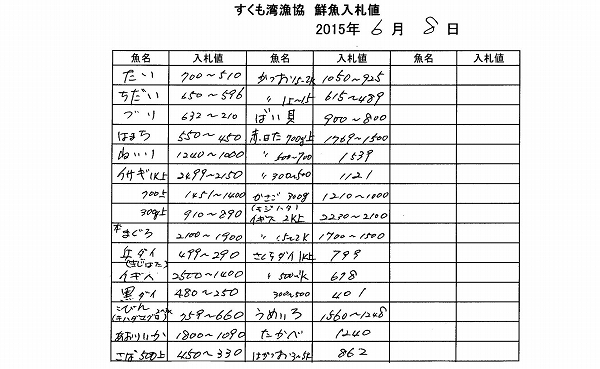 すくも湾漁協 鮮魚入札値
2015年 6 月 8 日
魚名 入札値 魚名 入札値 魚名 入札値
たい 700～510 かつお 1.5-2K 1050～925
ちだい 650～596 〃 1.5～1.5 615～489
づり 632～210 ばい貝 900～800
はまち 550～450 赤日だ 700g上 1769～1500
1240～1000 〃 500～700 1539
イサギ 1K上 2499～2150 〃 300～500 1121
700上 1451～1400 かさご 300g 1210～1000
30g上 910～890 イギス 2K上 2230～2100
本まぐろ 2100～1900 〃 1.5～2K 1700～1500
兵ダイ 499～290 さくらダイ 1K上 799
イギス 2500～1400 〃 500～1K 678
黒ダイ 480～250 300～500 401
こびん (キハダマグロ) 759～660 うめいろ 1560～1248
あおりいか 1800～1090 たかべ 1240
さば 500上 450～330 はがつお 3～5K 862